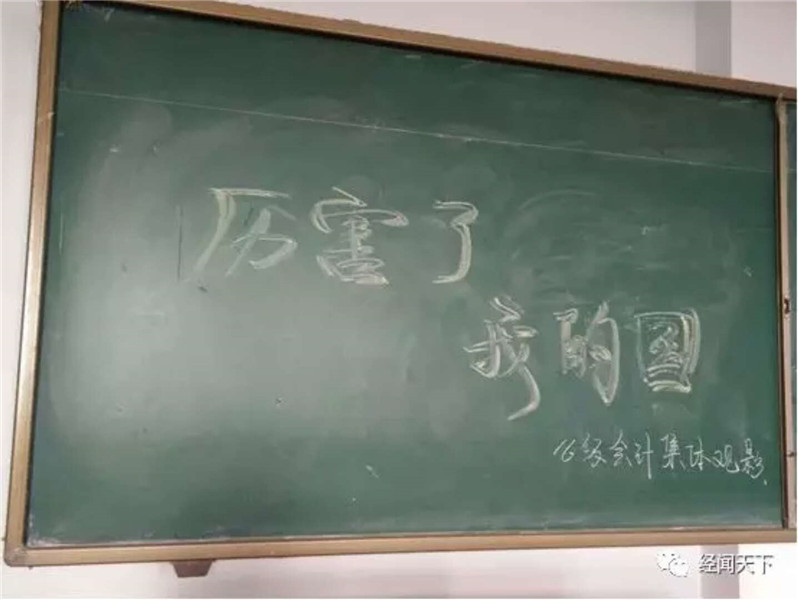 厉害了
我的国
16级会计集体观影
经闻天下